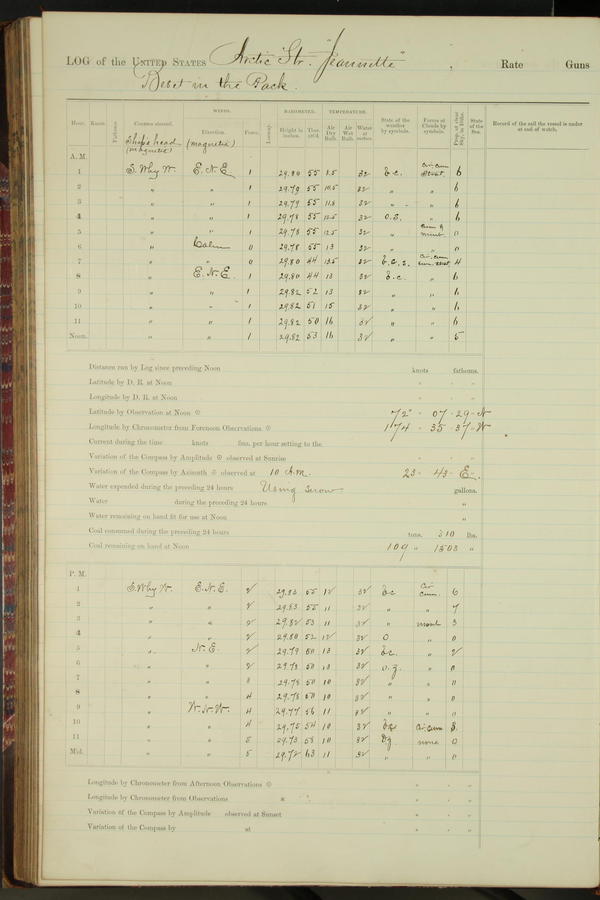 LOG of the UNITED STATES Arctic Str. "Jeannette", Rate Guns
Beset in the Pack.
WINDS. BAROMETER. TEMPERATURE.
Hour. Knots. Fathoms. Courses steered. Direction. Force. Leeway. Height in inches. Ther. att'd. Air Dry Bulb. Air Wet Bulb. Water at surface. State of the weather by symbols. Forms of Clouds by symbols. Prop. of clear Sky, in 10ths. State of the Sea. Record of the sail the vessel is under at end of watch.
Ship's head (magnetic) (magnetic)
A. M.
1 S. Why W. E. N. E. 1 29.80 55 8.5 32 b.c. cir. cum strat. 6
2 " " 1 29.79 55 10.5 32 " " 6
3 " " 1 29.79 55 11.8 32 " " 6
4 " " 1 29.78 55 12.5 32 o.s. " 6
5 " " 1 29.78 55 12.5 32 " cum & nimb. 0
6 " Calm 0 29.78 55 13 32 " " 0
7 " " 0 29.80 44 13.5 32 b.c.s. cir. cum cum. strat 4
8 " E. N. E. 1 29.80 44 13 32 b.c. " 6
9 " " 1 29.82 52 13 32 " " 6
10 " " 1 29.82 51 15 32 " " 6
11 " " 1 29.82 50 16 32 " " 6
Noon. " " 1 29.82 53 16 32 " " 5
Distance run by Log since preceding Noon knots fathoms.
Latitude by D. R. at Noon
Longitude by D. R. at Noon
Latitude by Observation at Noon ☉ 72° - 07 - 29 - N
Longitude by Chronometer from Forenoon Observations ☉ 174 - 35 - 37 - W
Current during the time knots fms. per hour setting to the
Variation of the Compass by Amplitude ☉ observed at Sunrise
Variation of the Compass by Azimuth ☉ observed at 10 A.M. 23 - 43 - E.
Water expended during the preceding 24 hours Using snow gallons.
Water during the preceding 24 hours "
Water remaining on hand fit for use at Noon "
Coal consumed during the preceding 24 hours tons. 310 lbs.
Coal remaining on hand at Noon 109 " 1503 "
P. M.
1 S. Why W. E. N. E. 2 29.83 55 12 32 bc Cir cum. 6
2 " " 2 29.83 55 11 32 " " 7
3 " " 2 29.82 53 11 32 " 3
4 " " 2 29.80 52 12 32 O " 0
5 " N. E. 2 29.79 50 13 32 bc. " 2
6 " " 2 29.79 50 13 32 o.z. " 0
7 " " 3 29.78 50 10 32 " " 0
8 " " 4 29.78 50 10 32 " " 0
9 " N. N. W. 4 29.77 56 11 32 " " 0
10 " " 4 29.75 54 10 32 Cir. cum 3
11 " " 5 29.73 58 10 32 none 0
Mid. " " 5 29.72 63 11 32 " " 0
Longitude by Chronometer from Afternoon Observations ☉
Longitude by Chronometer from Observations *
Variation of the Compass by Amplitude observed at Sunset
Variation of the Compass by at